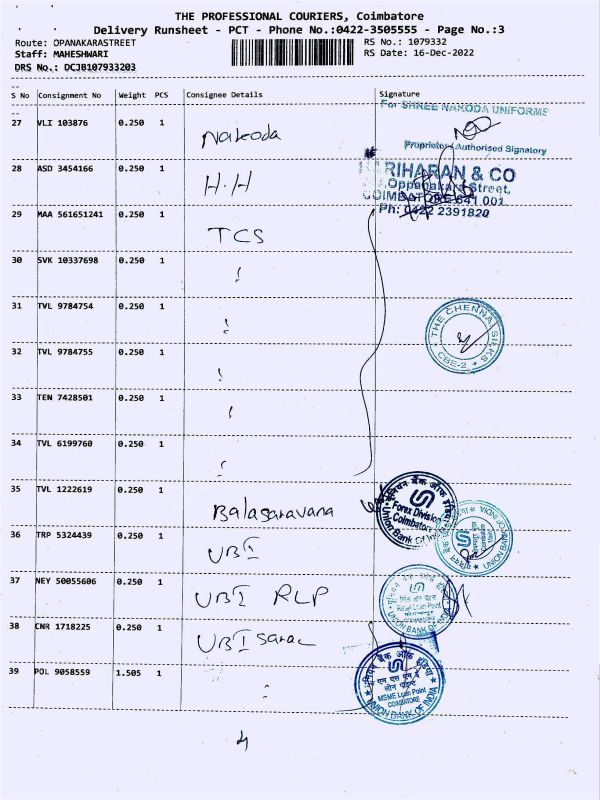 THE PROFESSIONAL COURIERS, Coimbatore
Delivery Runsheet - PCT - Phone No.:0422-3505555 - Page No.:3
Route: OPANAKARASTREET
RS No.: 1079332
Staff: MAHESHWARI
RS Date: 16-Dec-2022
DRS No.: DCJB107933203
S No Consignment No Weight PCS Consignee Details Signature
For SHREE NAKODA UNIFORMS
27 VLI 103876 0.250 1 Nakoda
Proprietor / Authorised Signatory
28 ASD 3454166 0.250 1 H.H
HARIHARAN & CO
Oppanakara Street,
COIMBATORE 641 001
Ph: 0422 2391820
29 MAA 561651241 0.250 1 TCS
30 SVK 10337698 0.250 1
31 TVL 9784754 0.250 1
THE CHENNAI SILKS
CBE-2
32 TVL 9784755 0.250 1
33 TEN 7428501 0.250 1
34 TVL 6199760 0.250 1
35 TVL 1222619 0.250 1 Balasaravana
यूनियन बैंक ऑफ इंडिया
Forex Division
Coimbatore
Union Bank Of India
36 TRP 5324439 0.250 1 UBI
UNION BANK
37 NEY 50055606 0.250 1 UBI RLP
Retail Loan Point
UNION BANK OF INDIA
38 CNR 1718225 0.250 1 UBI Sarac
39 POL 9058559 1.505 1
यूनियन बैंक ऑफ इंडिया
MSME Loan Point
COIMBATORE
UNION BANK OF INDIA